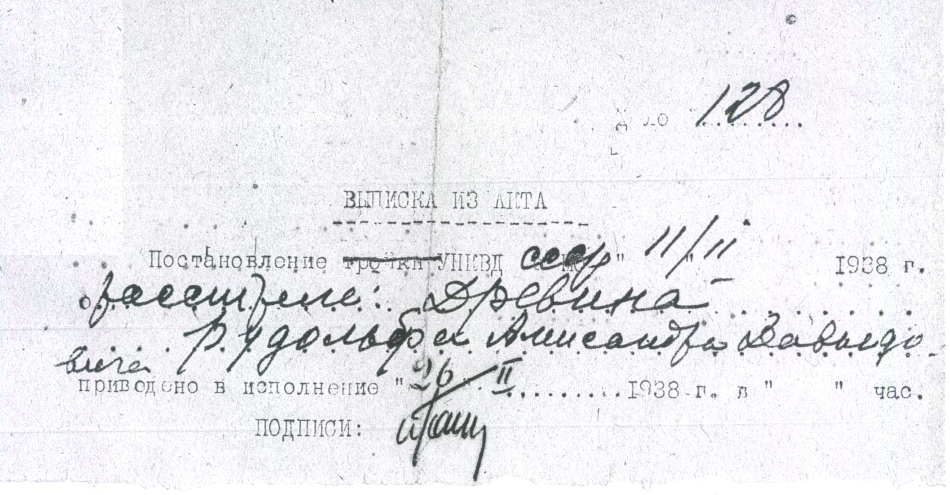 дело 128
ВЫПИСКА ИЗ АКТА
Постановление тройки УНКВД СССР " 11/II 1938 г.
о расстреле: Древина
Рудольфа Александра Давыдо-
вича
приведено в исполнение "26" II 1938 г. в " " час.
ПОДПИСИ: